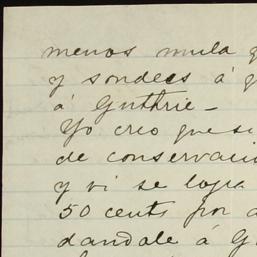 menos mula q
y sondees á q
á Guthrie_
Yo creo que si
de conservaci
y vi se logra
50 cents por a
dandole á G